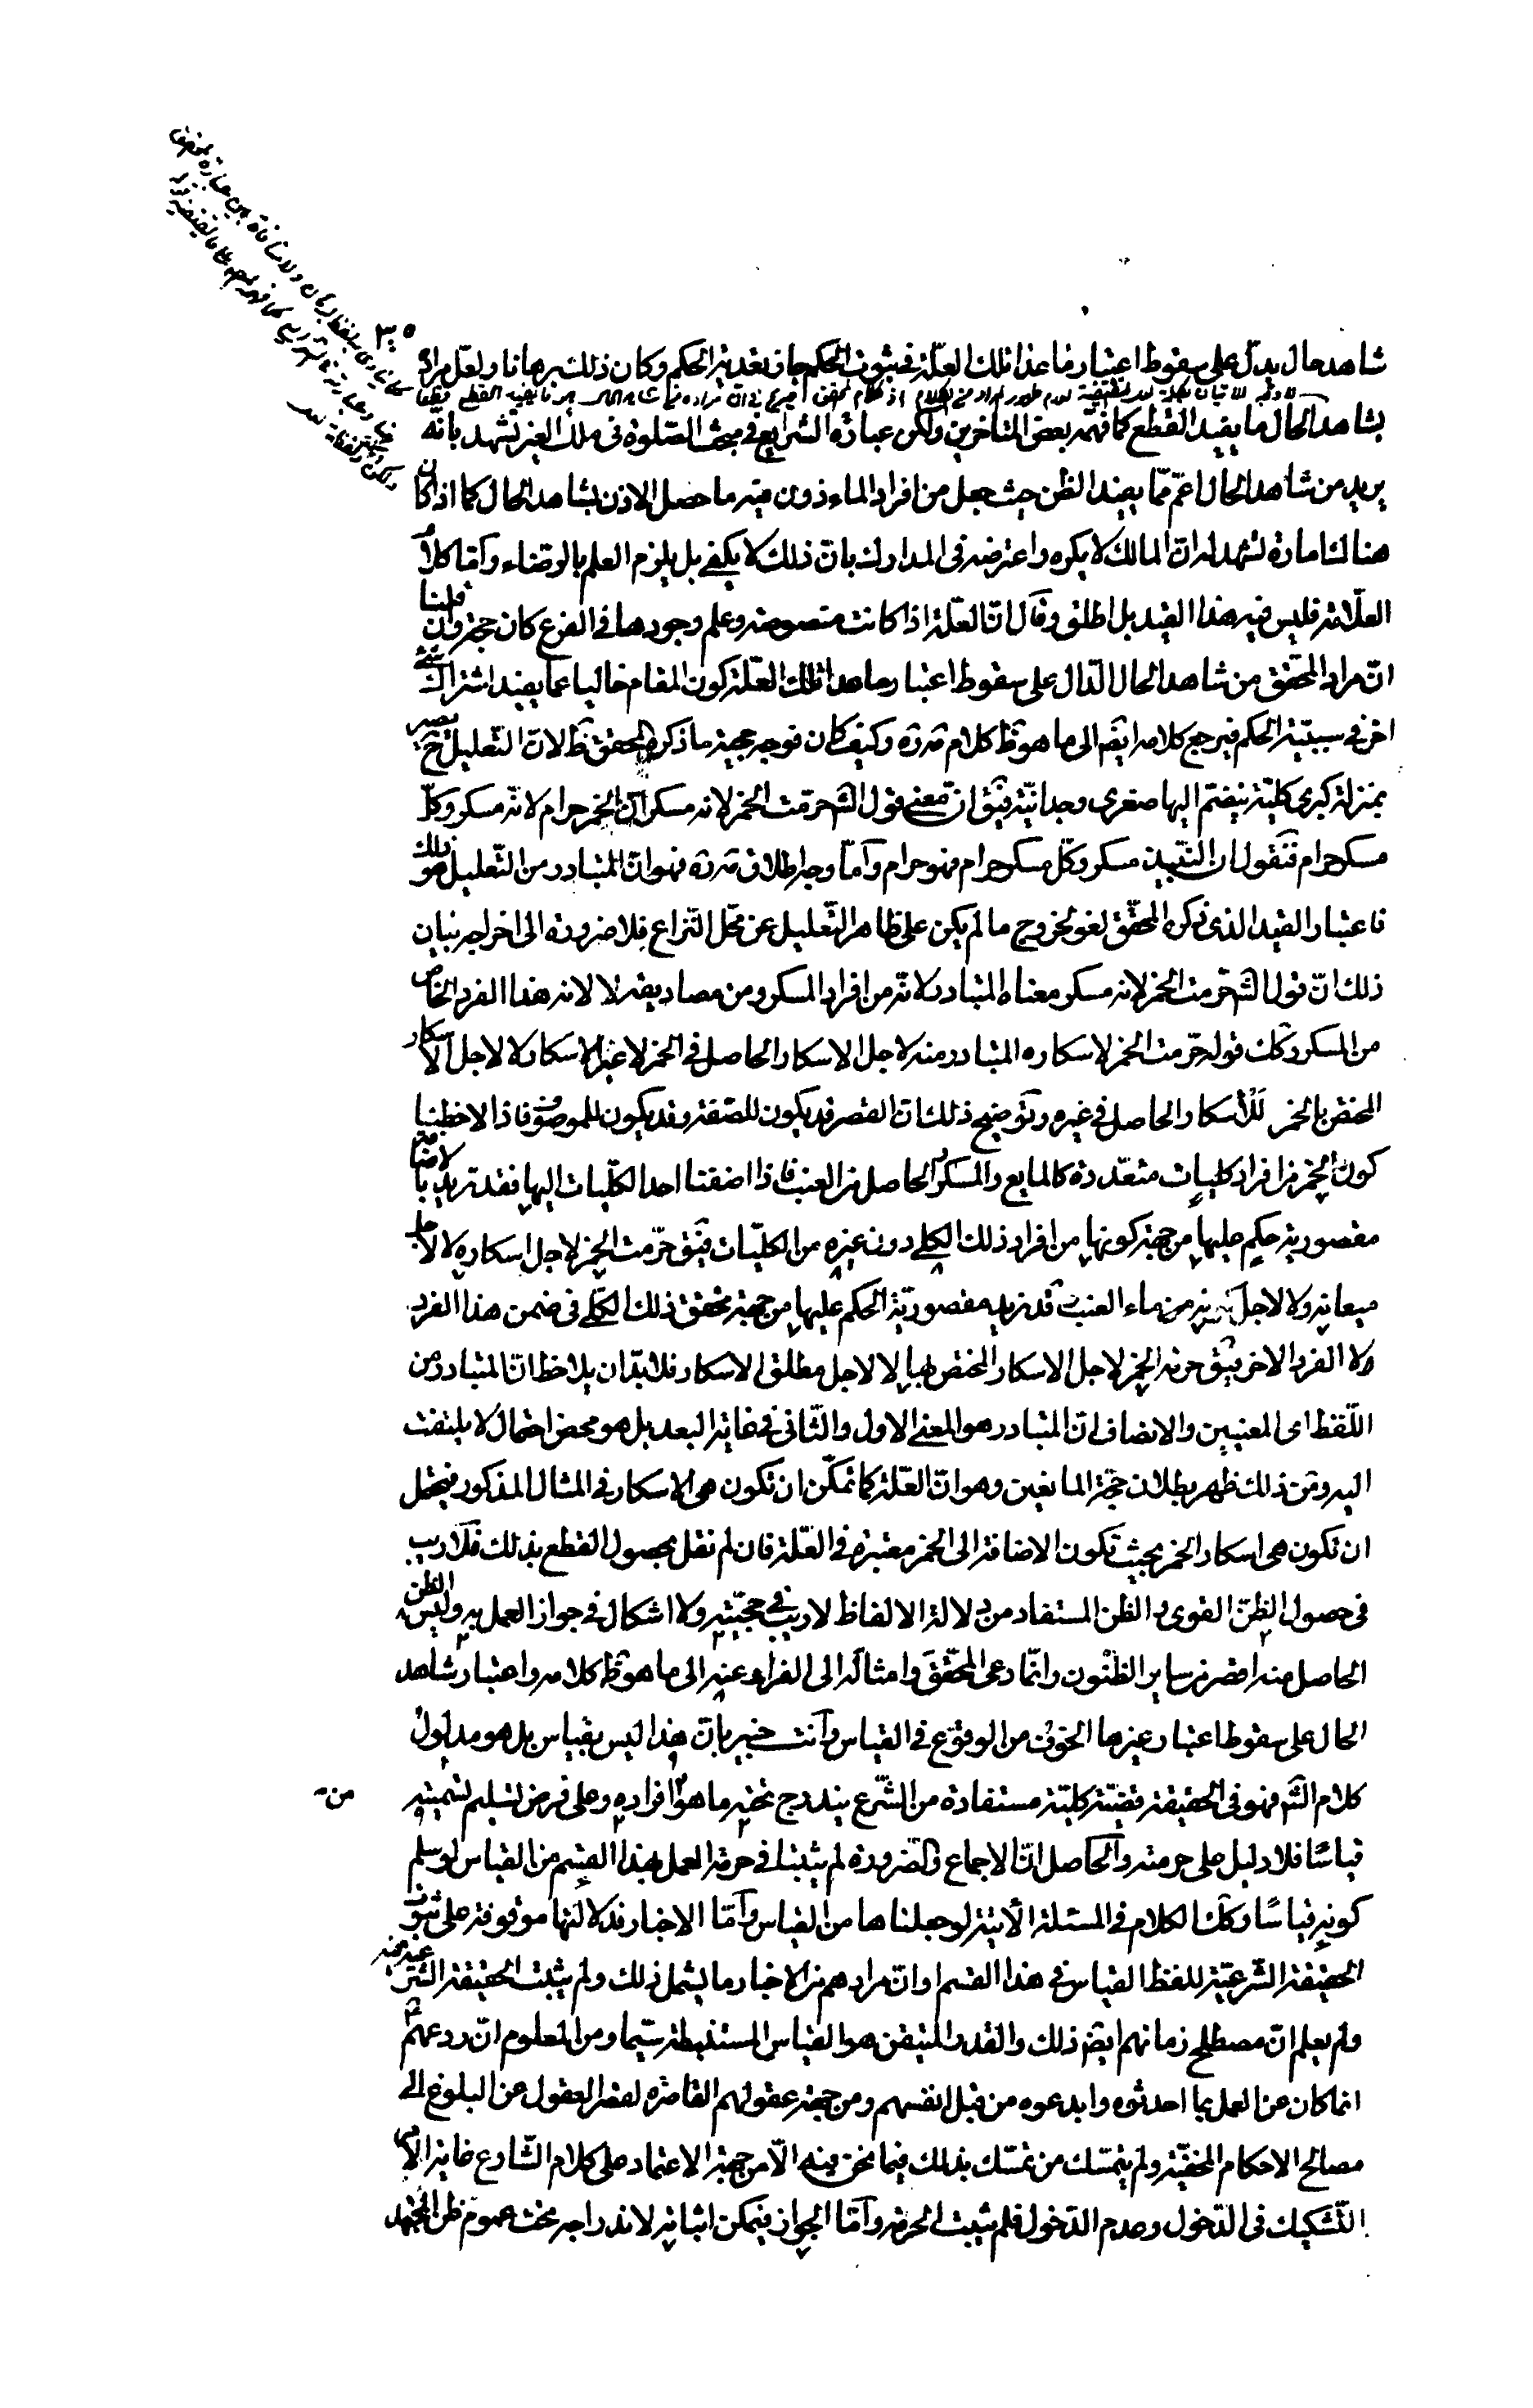 شاهد حال يدلّ على سقوط اعتبار ما عدا تلك العلّة فى ثبوت الحكم جاز تعدية الحكم وكان ذلك برهانا ولعلّ مراده
بشاهد الحال ما يفيد القطع كما فهمه بعض المتاخرين ولكن عبارة الشرايع فى مبحث الصّلوة فى ملك الغير تشهد بانّه
يريد من شاهد الحال اعمّ ممّا يفيد الظن حيث جعل من افراد الماءذون فيه ما حصل الاذن بشاهد الحال كما اذا كان
هناك امارة تشهد ان المالك لا يكره واعترضه فى المدارك بانّ ذلك لا يكفى بل يلزم العلم بالرضاء وامّا كلام
العلّامة فليس فيه هذا القيد بل اطلق وقال انّ العلّة اذا كانت منصوصة وعلم وجودها فى الفرع كان حجة وان قلنا
انّ مراد المحقّق من شاهد الحال الدّال على سقوط اعتبار ما عدا تلك العلّة كون المقام خاليا عما يفيد اشتراك شئ
اخر فى سببيّة الحكم فيرجع كلامه ايضا الى ما هو ظ كلام مة ره وكيف كان فوجه حجية ما ذكره المحقق ظ لان التّعليل ح يصير
بمنزلة كبرى كلّية ينضمّ اليها صغرى وجدانيّة فيق ان معنى قول الش حرّمت الخمر لانه مسكر انّ الخمر حرام لانّه مسكر وكلّ
مسكر حرام فنقول ان النّبيذ مسكر وكلّ مسكر حرام فهو حرام وامّا وجه اطلاق مة ره فهو انّ المتبادر من التّعليل هو ذلك
فاعتبار القيد الذى ذكره المحقّق لغو لخروج ما لم يكن على ظاهر التّعليل عن محّل النّزاع فلا ضرورة الى اخراجه بيان
ذلك انّ قول الش حرّمت الخمر لانه مسكر معناه المتبادر لانّه من افراد المسكر ومن مصاديقه لا لانه هذا الفرد الخاص
من المسكر وكك قوله حرّمت الخمر لاسكاره المتبادر منه لاجل الاسكار الحاصل فى الخمر لا غير الاسكار لا لاجل الاسكار
المختص بالخمر لا الأسكار الحاصل فى غيره وتوضيح ذلك ان القصر قد يكون للصّفة وقد يكون للموصوف فاذا لاحظنا
كون الخمر من افراد كليات متعدّدة كالمايع والمسكر والحاصل من العنب فاذا اضفنا احد الكلّيات اليها فقد نريد بالاضافة
مقصورية حكم عليها من جهة كونها من افراد ذلك الكلى دون غيره من الكلّيات فيق حرّمت الخمر لاجل اسكاره لا لاجل
ميعانه ولا لاجل من ماء العنب وقد نريد مقصوريّة الحكم عليها من جهة تحقق ذلك الكلّى فى ضمن هذا الفرد
ولا الفرد الاخر فيق حرمة الخمر لاجل الاسكار المختص بها لا لاجل مطلق الاسكار فلا بدّ ان يلاحظ انّ المتبادر من
اللّفظ اى المعنيين والانصاف انّ المتبادر هو المعنى الاول والثّانى فى غاية البعد بل هو محض احتمال لا يلتفت
اليه ومن ذلك ظهر بطلان حجّة المانعين وهو انّ العلّة كما تمكّن ان تكون هى الاسكار فى المثال المذكور فيحتمل
ان تكون هى اسكار الخمر بحيث تكون الاضافة الى الخمر معتبرة فى العلّة فان لم نقل بحصول القطع بذلك فلا ريب
فى حصول الظّن القوى به الظن المستفاد من دلالة الالفاظ لا ريب فى حجيّته ولا اشكال فى جواز العمل به وليس الظن
الحاصل منه اضعف من ساير الظّنون وانّما دعى المحقّق وامثاله الى الفرار عنه الى ما هو ظ كلامه واعتبار شاهد
الحال على سقوط اعتبار غيرها الخوف من الوقوع فى القياس وانت خبير بانّ هذا ليس بقياس بل هو مدلول
كلام الش فهو فى الحقيقة قضيّة كليّة مستفادة من الشّرع يندرج تحته ما هو من افراده وعلى فرض تسليم تسميته
قياسًا فلا دليل على حرمته والحاصل انّ الاجماع والضرورة لم يثبتا فى حرمة العمل بهذا القسم من القياس لو سلم
كونه قياسًا وكك الكلام فى المسئلة الآتية لو جعلناها من القياس وامّا الاخبار فدلالتها موقوفة على ثبوت
الحقيقة الشّرعيّة للفظ القياس فى هذا القسم او انّ مرادهم من الاخبار ما يشمل ذلك ولم يثبت الحقيقة الشّرعية
ولم يعلم انّ مصطلح زمانهم ايضا ذلك والقدر المتيقن هو القياس المستنبطة سيّما ومن المعلوم انّ ردعهم ع
انما كان عن العمل بما احدثوه وابدعوه من قبل انفسهم ومن جهة عقولهم القاصرة لقصر العقول عن البلوغ الى
مصالح الاحكام الخفيّة ولم يتمسّك من تمسّك بذلك فيما نحن فيه الّا من جهة الاعتماد على كلام الشّارع غاية الامر
التّشكيك فى الدّخول وعدم الدّخول فلم يثبت الحرمة وامّا الجواز فيمكن اثباته لاندراجه تحت عموم ظن المجتهد